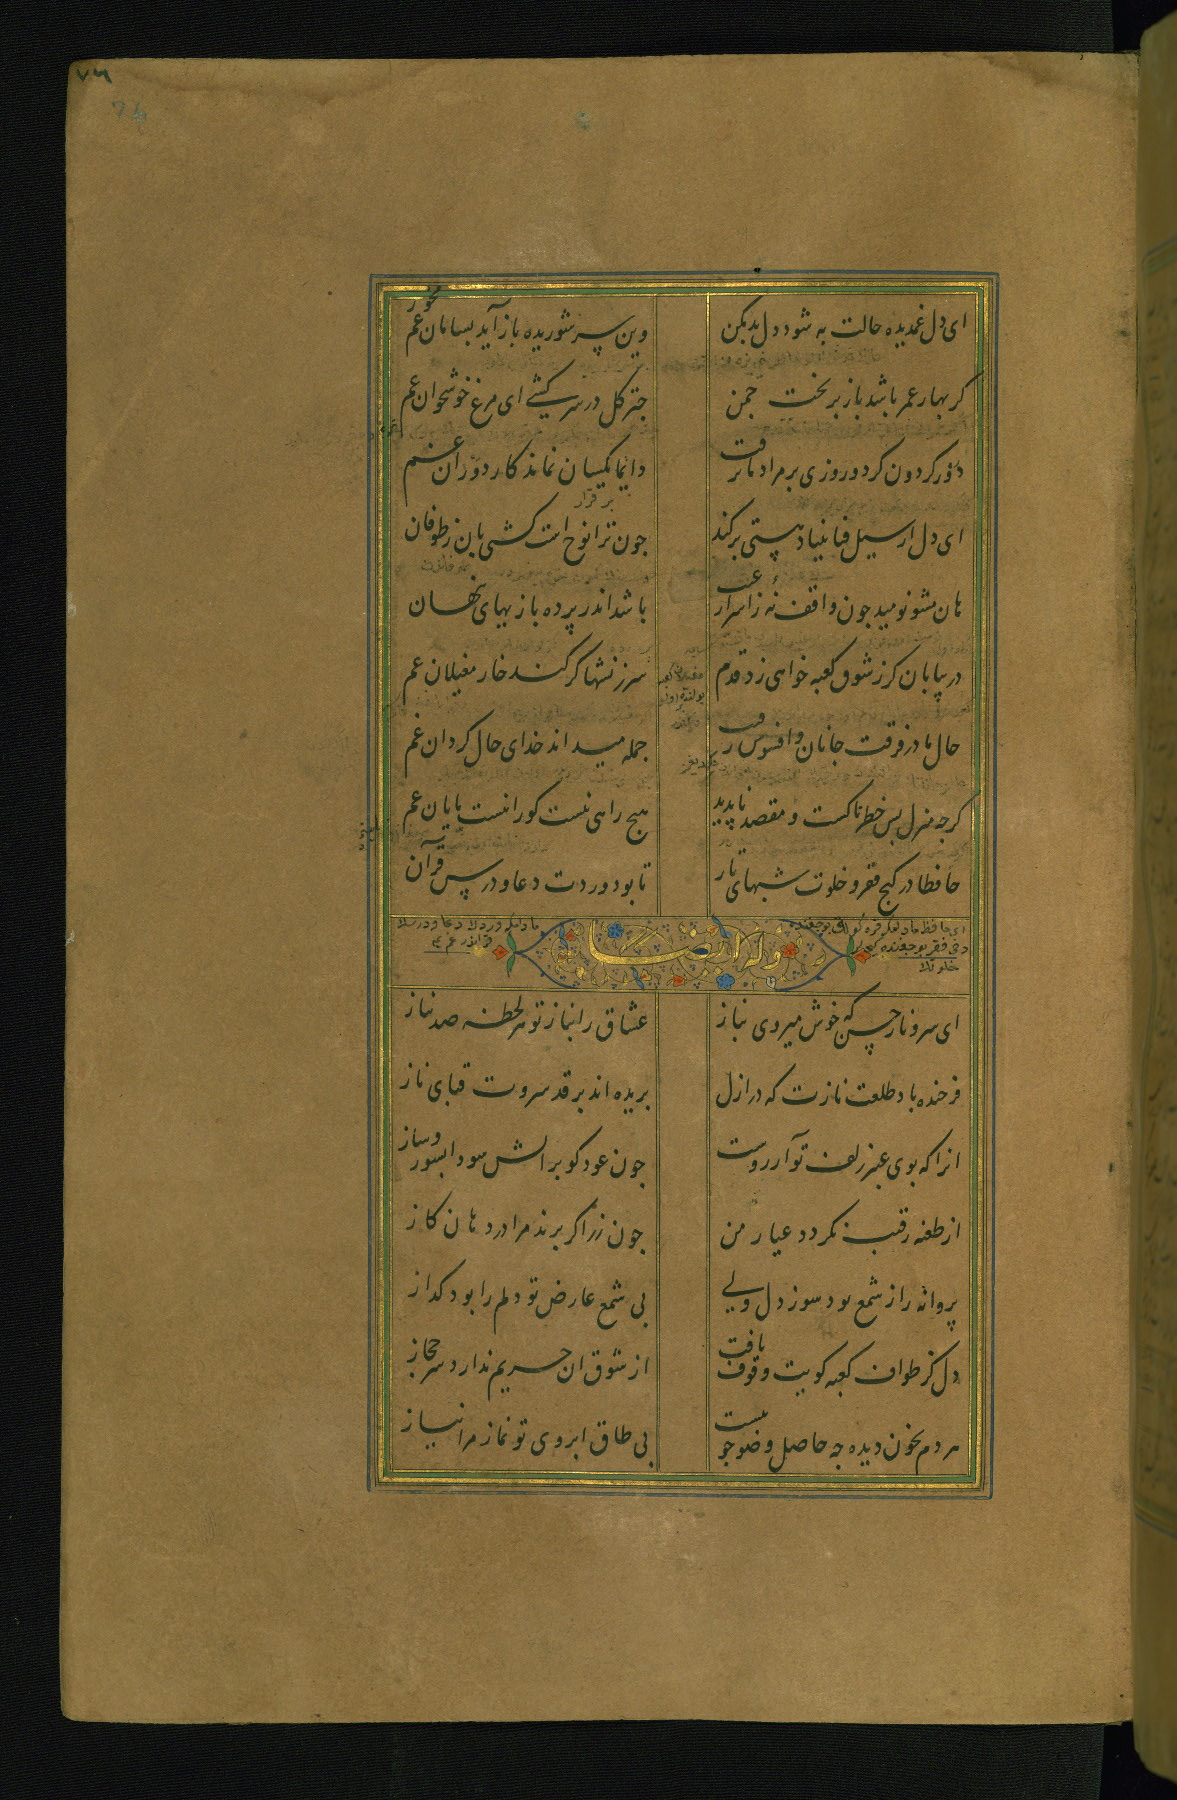 ٧٦
76
ای دل غمدیده حالت به شود دل بد مکن
وین سر شوریده باز آید بسامان غم مخور
کر بهار عمر باشد باز بر تخت چمن
چتر کل در سر کشی ای مرغ خوشخوان غم
دور کردون کر دو روزی بر مراد ما نرفت
دایما یکسان نماند کار دوران غم
ای دل ار سیل فنا بنیاد هستی برکند
چون ترا نوح است کشتی بان ز طوفان
هان مشو نومید چون واقف نهٔ ز اسرار غیب
باشد اندر پرده بازیهای نهان
در بیابان کر ز شوق کعبه خواهی زد قدم
سرزنشها کر کند خار مغیلان غم
حال ما در فرقت جانان و افسوس رقیب
جمله میداند خدای حال کردان غم
کرچه منزل بس خطرناکست و مقصد ناپدید
هیچ راهی نیست کورا نیست پایان غم
حافظا در کنج فقر و خلوت شبهای تار
تا بود وردت دعا و درس قرآن
وله ایضا
ای سرو ناز حسن که خوش میروی بناز
عشاق را بناز تو هر لحظه صد نیاز
فرخنده باد طلعت نازت که در ازل
بریده اند بر قد سروت قبای ناز
انرا که بوی عنبر زلف تو آرزوست
چون عود کو بر آتش سودا بسوز و ساز
از طعنه رقیب نکردد عیار من
چون زر اکر برند مرا در دهان کاز
پروانه را ز شمع بود سوز دل ولی
بی شمع عارض تو دلم را بود کداز
دل کز طواف کعبه کویت وقوف یافت
از شوق ان حریم ندارد سر حجاز
هر دم بخون دیده چه حاصل وضو چو نیست
بی طاق ابروی تو نماز مرا نیاز